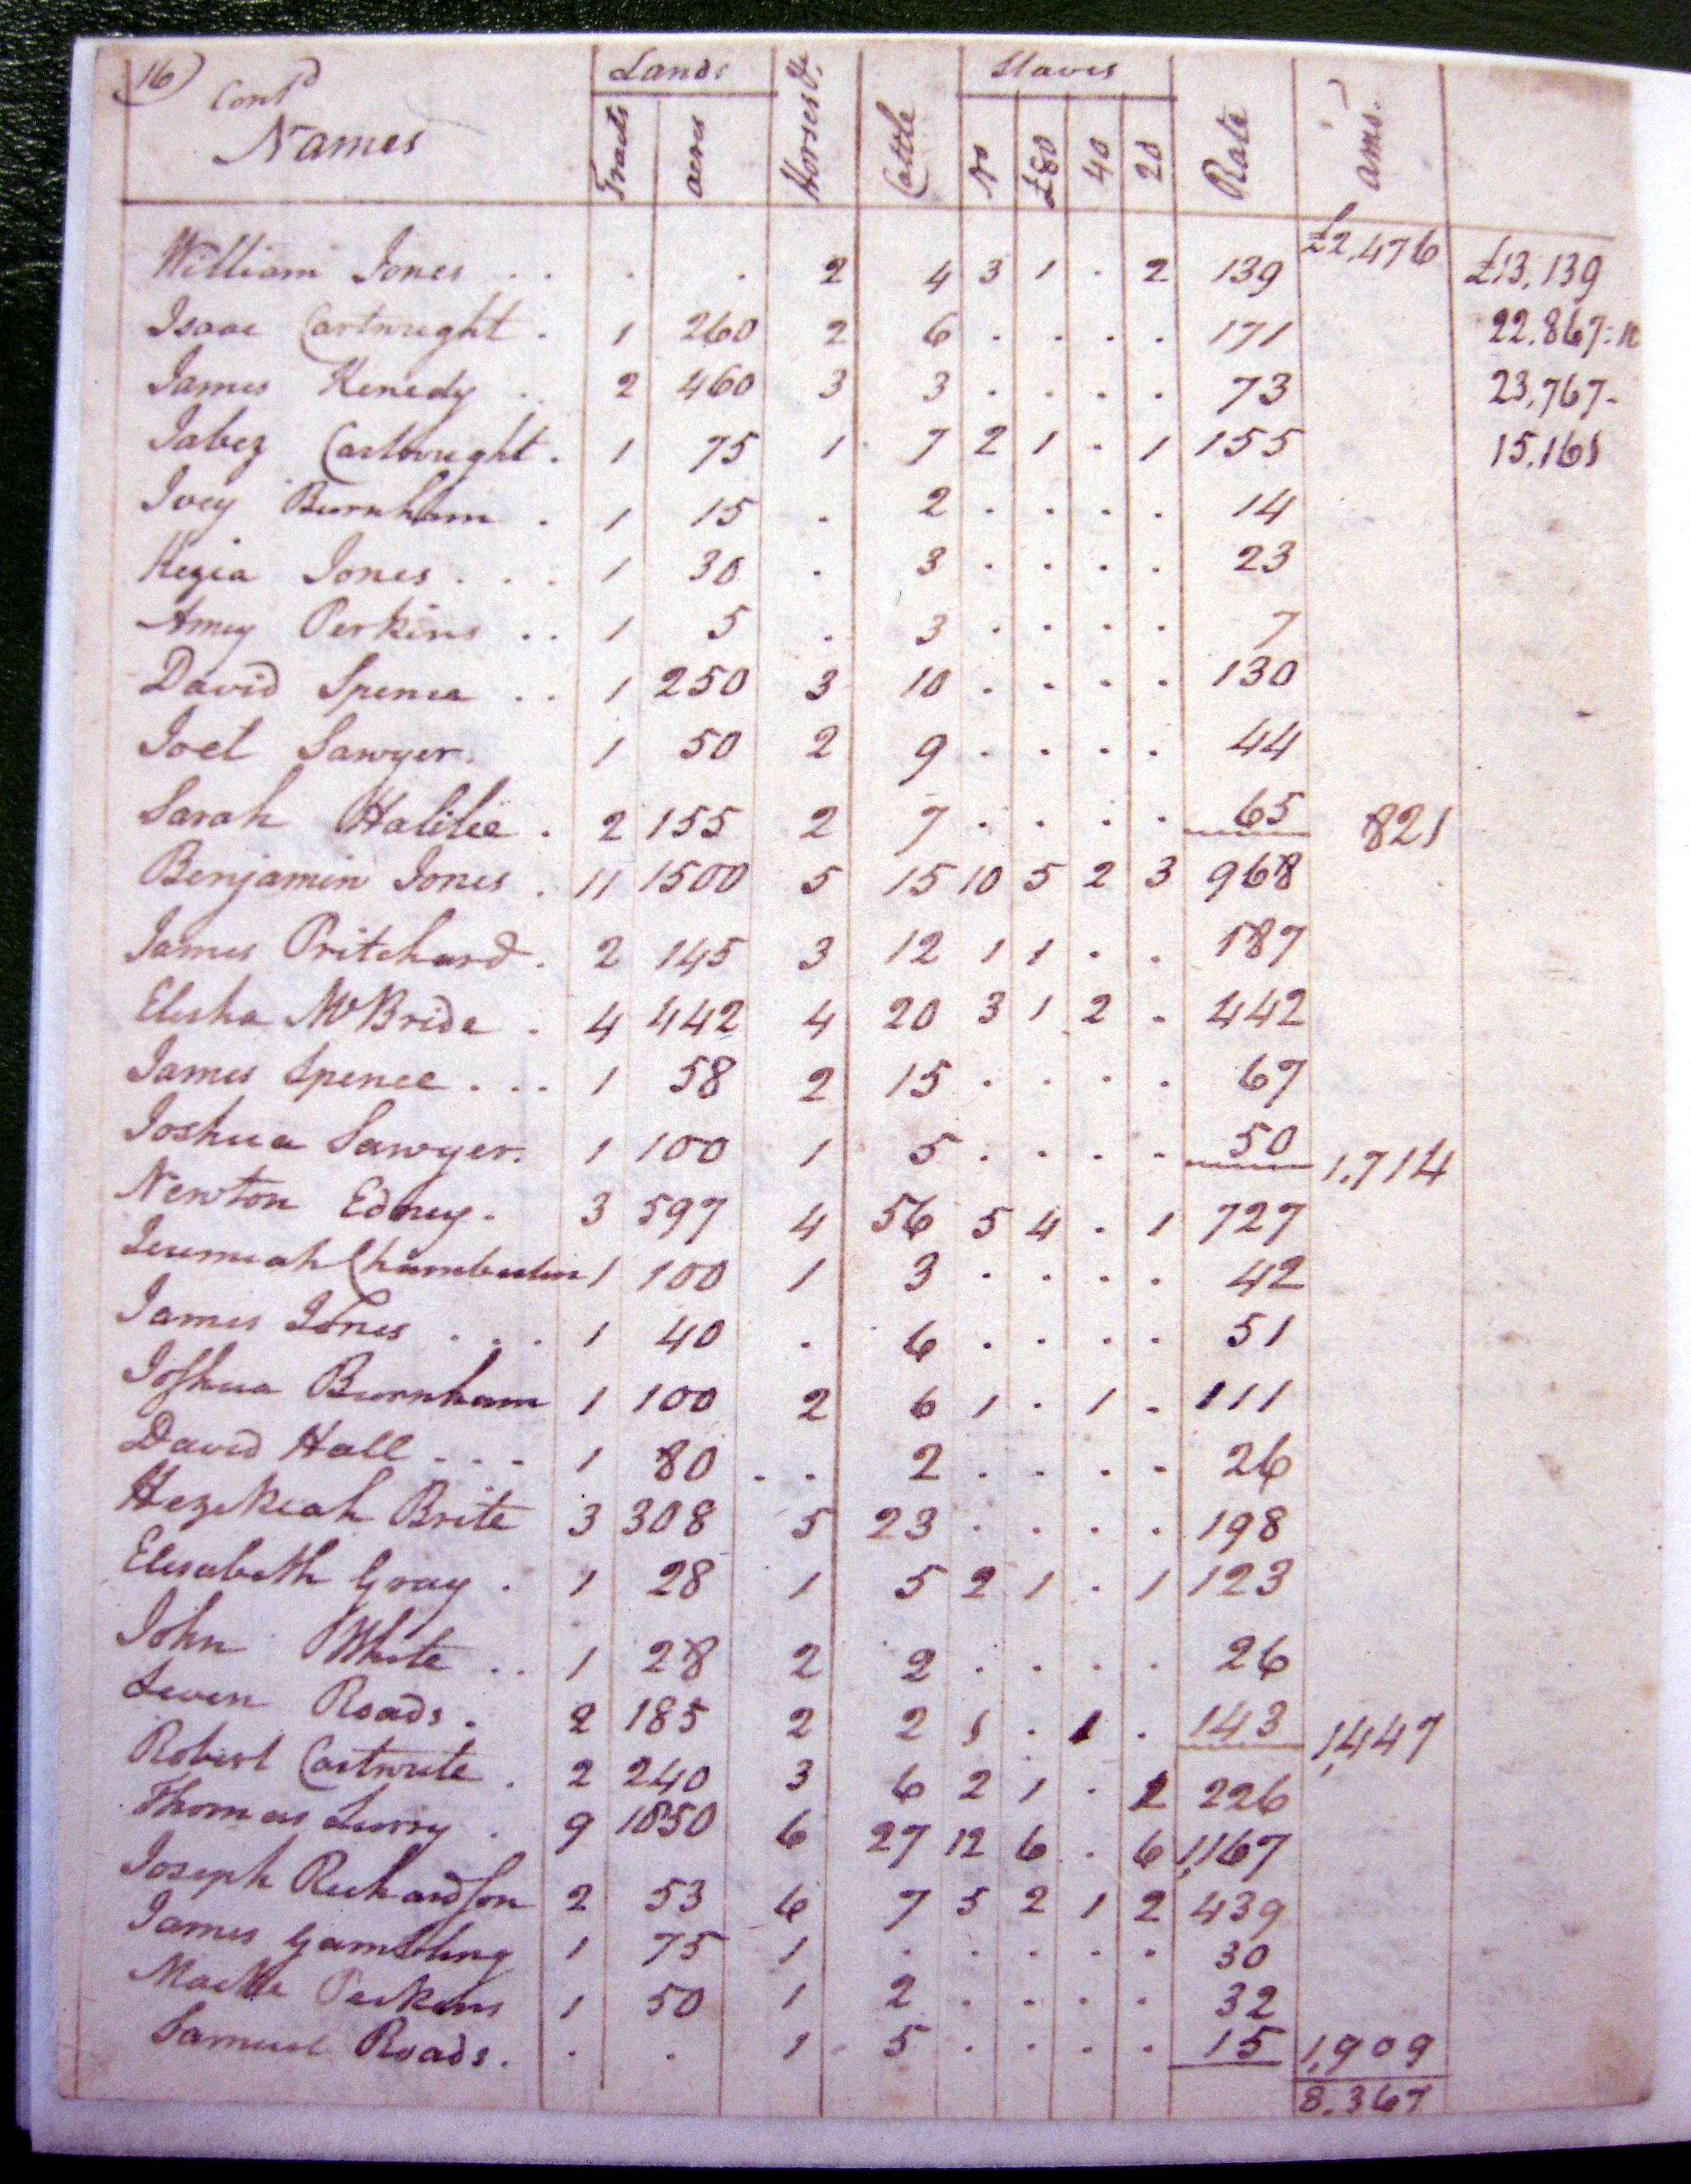 16) Cont'd
Names Lands Tracts acres Horses &c. Cattle Slaves No £80 40 20 Rate amo.
£2,476
William Jones . . . . 2 4 3 1 . 2 139 £13,139
Isaac Cartwright . 1 260 2 6 . . . . 171 22.867:
James Kenedy . . 2 460 3 3 . . . . 73 23,767-
Jabez Cartwright . 1 75 1 7 2 1 . 1 155 15.161
Ivey Burnham . 1 15 . 2 . . . . 14
Kezia Jones . . . 1 30 . 3 . . . . 23
Amey Perkins . . 1 5 . 3 . . . . 7
David Spence . . 1 250 3 10 . . . . 130
Joel Sawyer . 1 50 2 9 . . . . 44
Sarah Halilie . 2 155 2 7 . . . . 65 821
Benjamin Jones . 11 1500 5 15 10 5 2 3 968
James Pritchard . 2 145 3 12 1 1 . . 187
Elisha McBride . 4 442 4 20 3 1 2 . 442
James Spence . . . 1 58 2 15 . . . . 67
Joshua Sawyer . 1 100 1 5 . . . . 50 1,714
Newton Edney . 3 597 4 56 5 4 . 1 727
Jeremiah Chamberlin 1 100 1 3 . . . . 42
James Jones . . . 1 40 . 6 . . . . 51
Joshua Burnham 1 100 2 6 1 . 1 . 111
David Hall . . . 1 80 . . 2 . . . . 26
Hezekiah Brite 3 308 5 23 . . . . 198
Elisabeth Gray . 1 28 1 5 2 1 . 1 123
John White . . 1 28 2 2 . . . . 26
Leven Roads . 2 185 2 2 1 . 1 . 143 1,447
Robert Cartwrite . 2 240 3 6 2 1 . 1 226
Thomas Lurry . 9 1050 6 27 12 6 . 6 1,167
Joseph Richardson 2 53 6 7 5 2 1 2 439
James Gambling 1 75 1 . . . . . 30
Perkins 1 50 1 2 . . . . 32
Samuel Roads . . . 1 5 . . . . 15 1,909
8.367